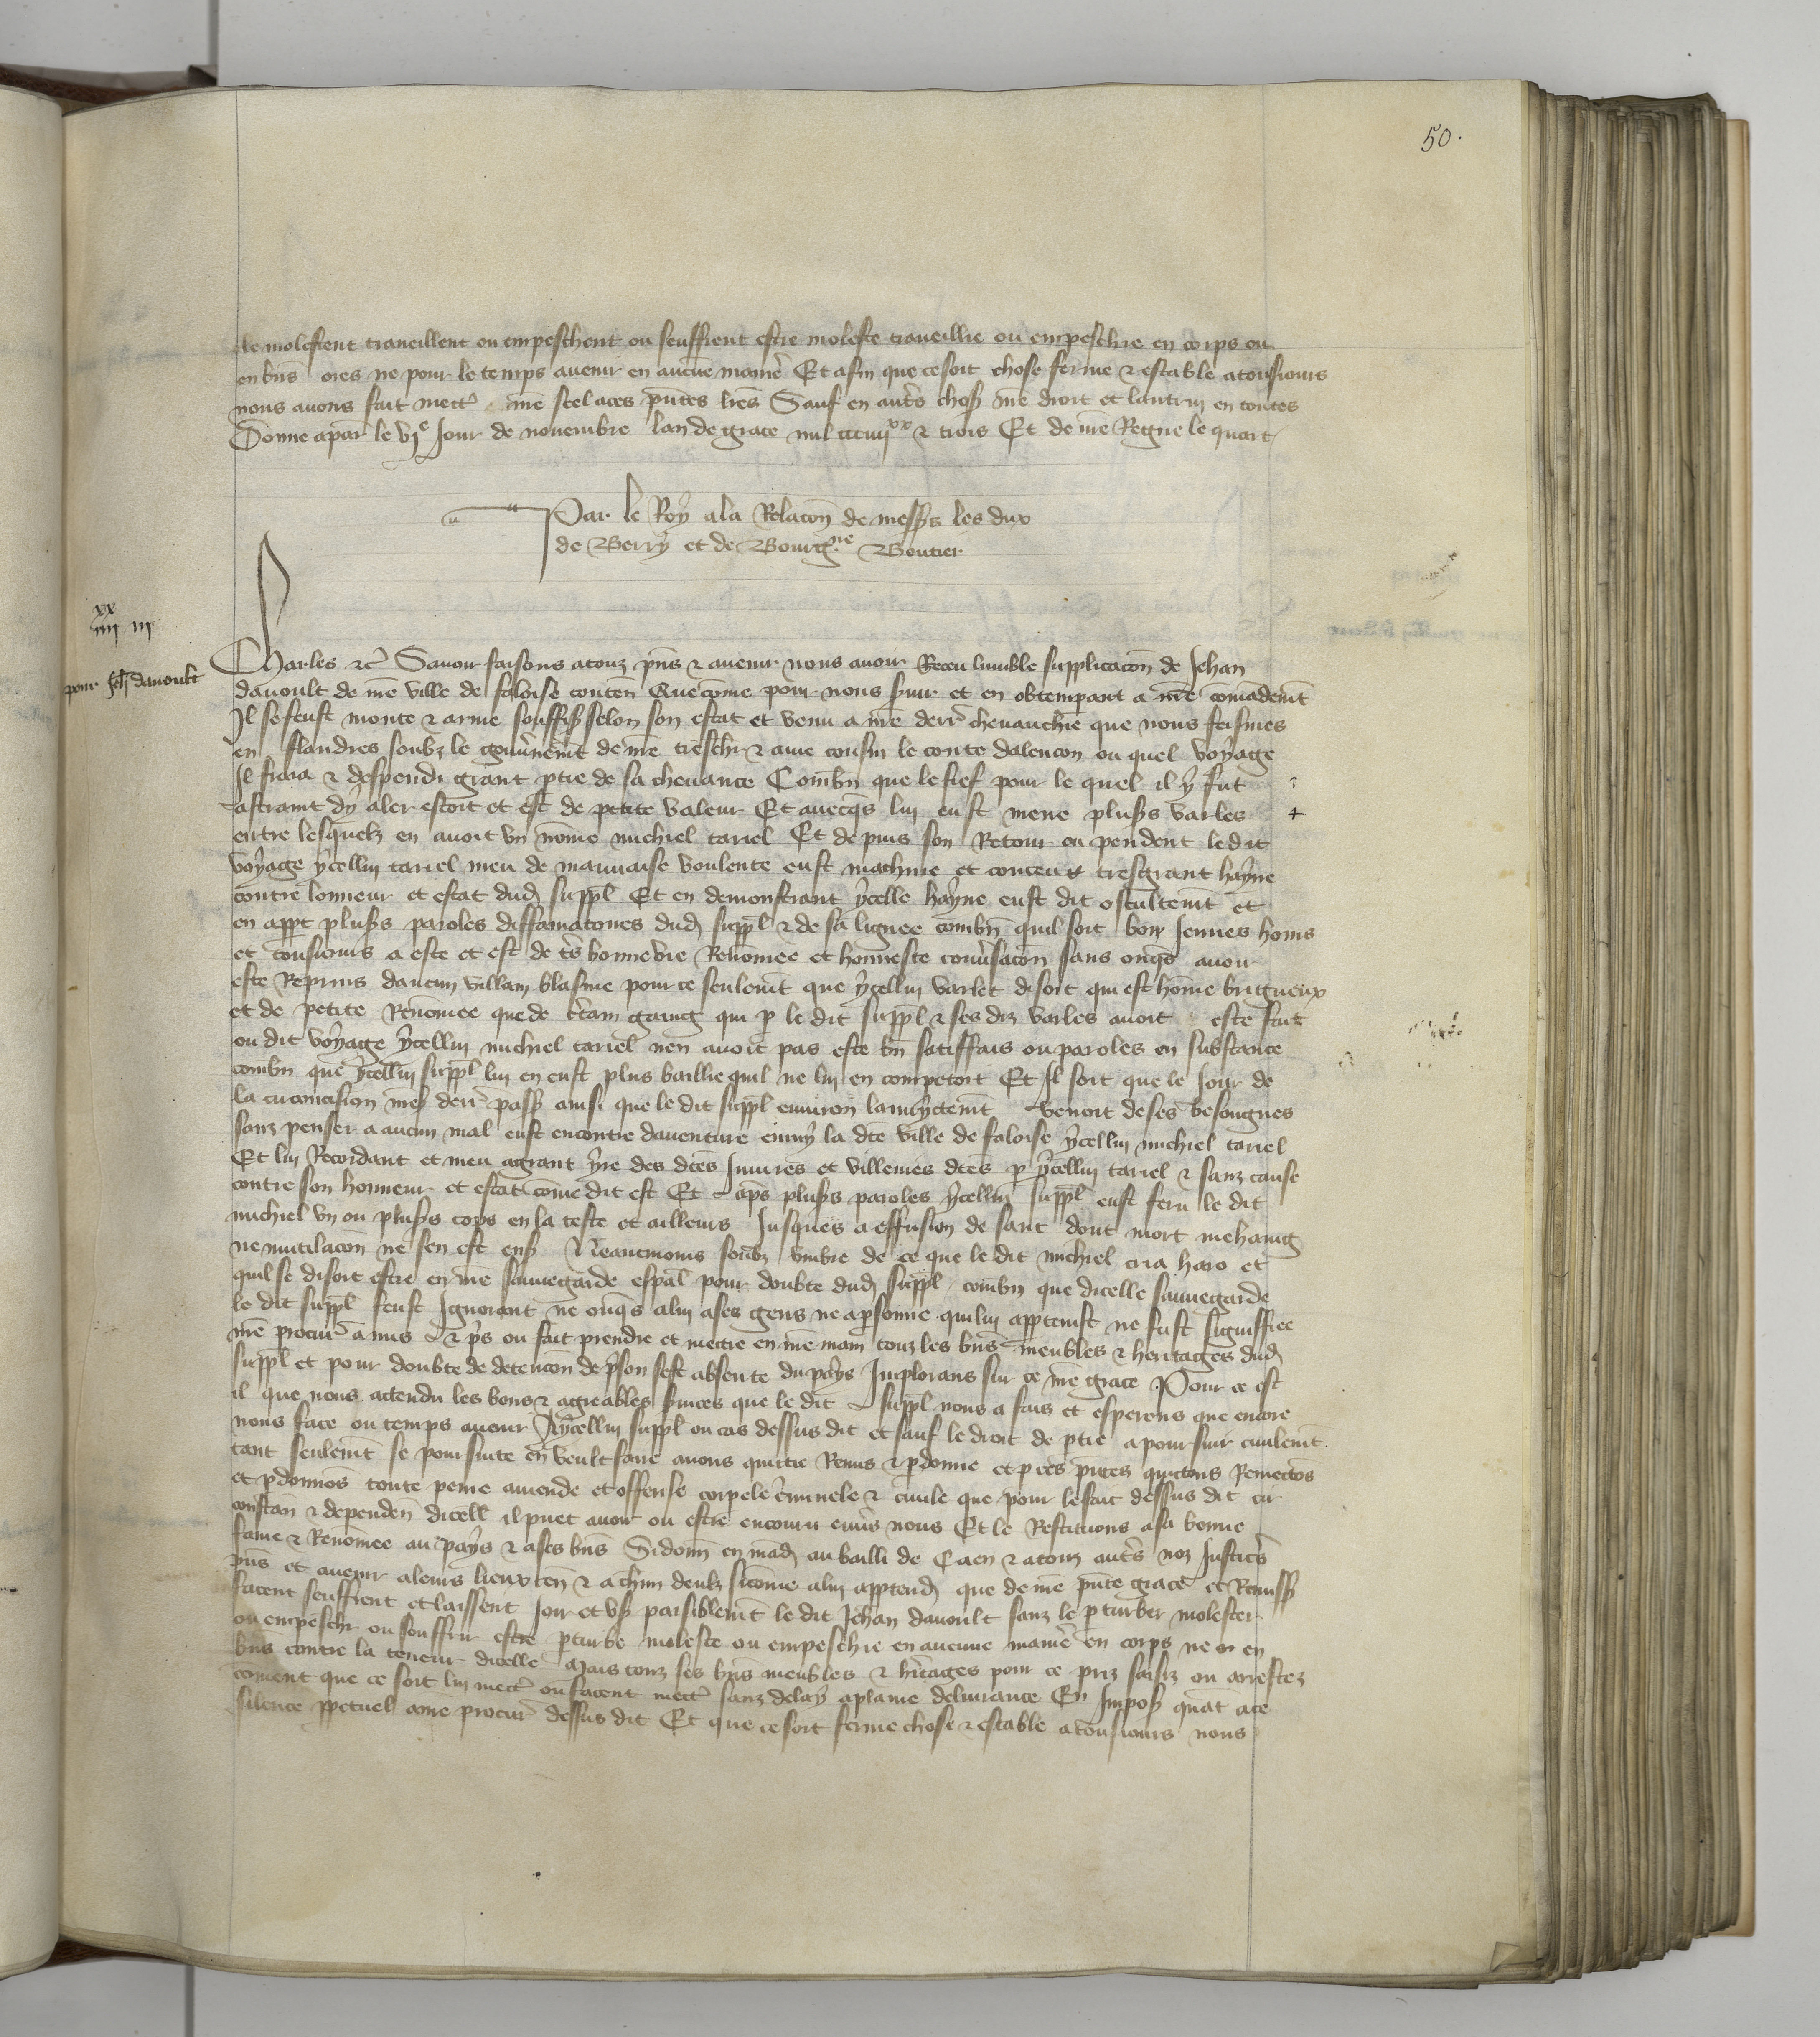 50.
le molestent traveillent ou empeschent ou seuffrent estre moleste traveillie ou empeschie en corps ou
en bns ores ne pour le temps avenir en aucune maniē Et afin que ce soit chose ferme & estable a tousiours
nous avons fait mectē nrē scel a ces pntes lrēs Sauf en autrēs choses nrē droit et lautruy en toutes
Donne a paris le vjᵉ Jour de novembre lan de grace mil ccciiijˣˣ & trois Et de nrē Regne le quart
Par le Roy a la Relacōn de messrs les dux
de Berry et de Bourgne Boutier
xx
iiij iij
pour Jehn davoult
Charles &c Savoir faisons a touz pns & avenir nous avoir Receu lumble supplicacōn de Jehan
davoult de nrē ville de faloise contenn Que cōme pour nous servir et en obtemperant a nrē cōmandemt
Il se feust monte & arme souffisss selon son estat et venu a nrē derrē chevauchie que nous feismes
en flandres soubz le gouvnemt de nrē treschr & ame cousin le conte dalencon ou quel voyage
Il fraia & despendi grant ptie de sa chevance Combn que le fief pour le quel il y fut
astraint dy aler estoit et est de petite valeur Et avecqs lui eust mene plusrs varles
entre lesquelz en avoit vn nōme michiel tariel Et depuis son Retour ou pendent le dit
voyage ycellui tariel meu de mauvaise voulente eust machine et conceu tresgrant hayne
contre lonneur et estat dud suppl Et en demonstrant ycelle hayne eust dit ocultemt et
en appt plusrs paroles diffamatoires dud suppl & de sa lignee combn quil soit bon Jeunes homs
et tousiours a este et est de trs bonne vie Renōmee et honneste convsacōn sans onqs avoir
este Reprins daucun villain blasme pour ce seulemt que ycellui varlet disoit qui est hōme brigueux
et de petite Renōmee que de ctain gaing qui p le dit suppl & ses diz varles avoit este fait
ou dit voyage ycellui michiel tariel nen avoit pas este bn satiffais ou paroles en substance
combn que ycellui suppl lui en eust plus baillie quil ne lui en competoit Et Il soit que le Jour de
la circoncision nrē derrē pass ainsi que le dit suppl environ lanuyctemt venoit de ses besongnes
sanz penser a aucun mal eust encontre daventure enmy la dte ville de faloise ycellui michiel tariel
Et lui Recordant et meu a grant yre des dtes Iniures et villenies dtes p ycellui tariel & sanz cause
contre son honneur et estat cōme dit est Et aps plusrs paroles ycellui suppl eust feru le dit
michiel vn ou plusrs cops en la teste et ailleurs Jusques a effusion de sanc dont mort mehaing
ne mutilacōn ne sen est ens Neantmoins soubz vmbre de ce que le dit michiel cria haro et
quil se disoit estre en nrē sauvegarde espal pour doubte dud suppl combn que dicelle sauvegarde
le dit suppl feust Ignorant ne onqs a lui a ses gens ne a psonne qui lui apptenist ne fust signiffiee
nrē procur a mis & prs ou fait prendre et mectre en nrē main touz les bns meubles & heritages dud
suppl et pour doubte de detencōn de pson sest absente du pays Implorans sur ce nrē grace Pour ce est
il que nous attendu les bons & agreables svices que le dit suppl nous a fais et esperons que encore
nous face ou temps avenir A ycellui suppl ou cas dessus dit et sauf le droit de ptie a poursuir civilemt
tant seulemt se poursuite en veult faire avons quictie Remis & pdonne et p ces pntes quictons Remectōs
et pdonnōs toute peine amende et offense corpele criminele & civile que pour le fait dessus dit cir
constan & dependen dicell il puet avoir ou estre encouru envrs nous Et le Restituons a sa bonne
fame & Renōmee au pays & a ses bns Si donn en mād au bailli de Caen & a touz autrs noz Justicrs
pns et avenir a leurs lieux ten & a chun deulz si cōme a lui apptendr que de nrē pnte grace et Remiss
facent seuffrent et laissent Joir et vsr paisiblemt le dit Jehan davoult sanz le pturber molester
ou empeschr ou souffrir estre pturbe moleste ou empeschie en aucune maniē en corps ne en
bns contre la teneur dicelle Mais touz ses bns meubles & heritages pour ce priz saisiz ou arrestez
coment que ce soit lui mectē ou facent mectē sanz delay a plaine delivrance En Impos quāt a ce
silence ppetuel a nrē procur dessus dit Et que ce soit ferme chose & estable a tousiours nous